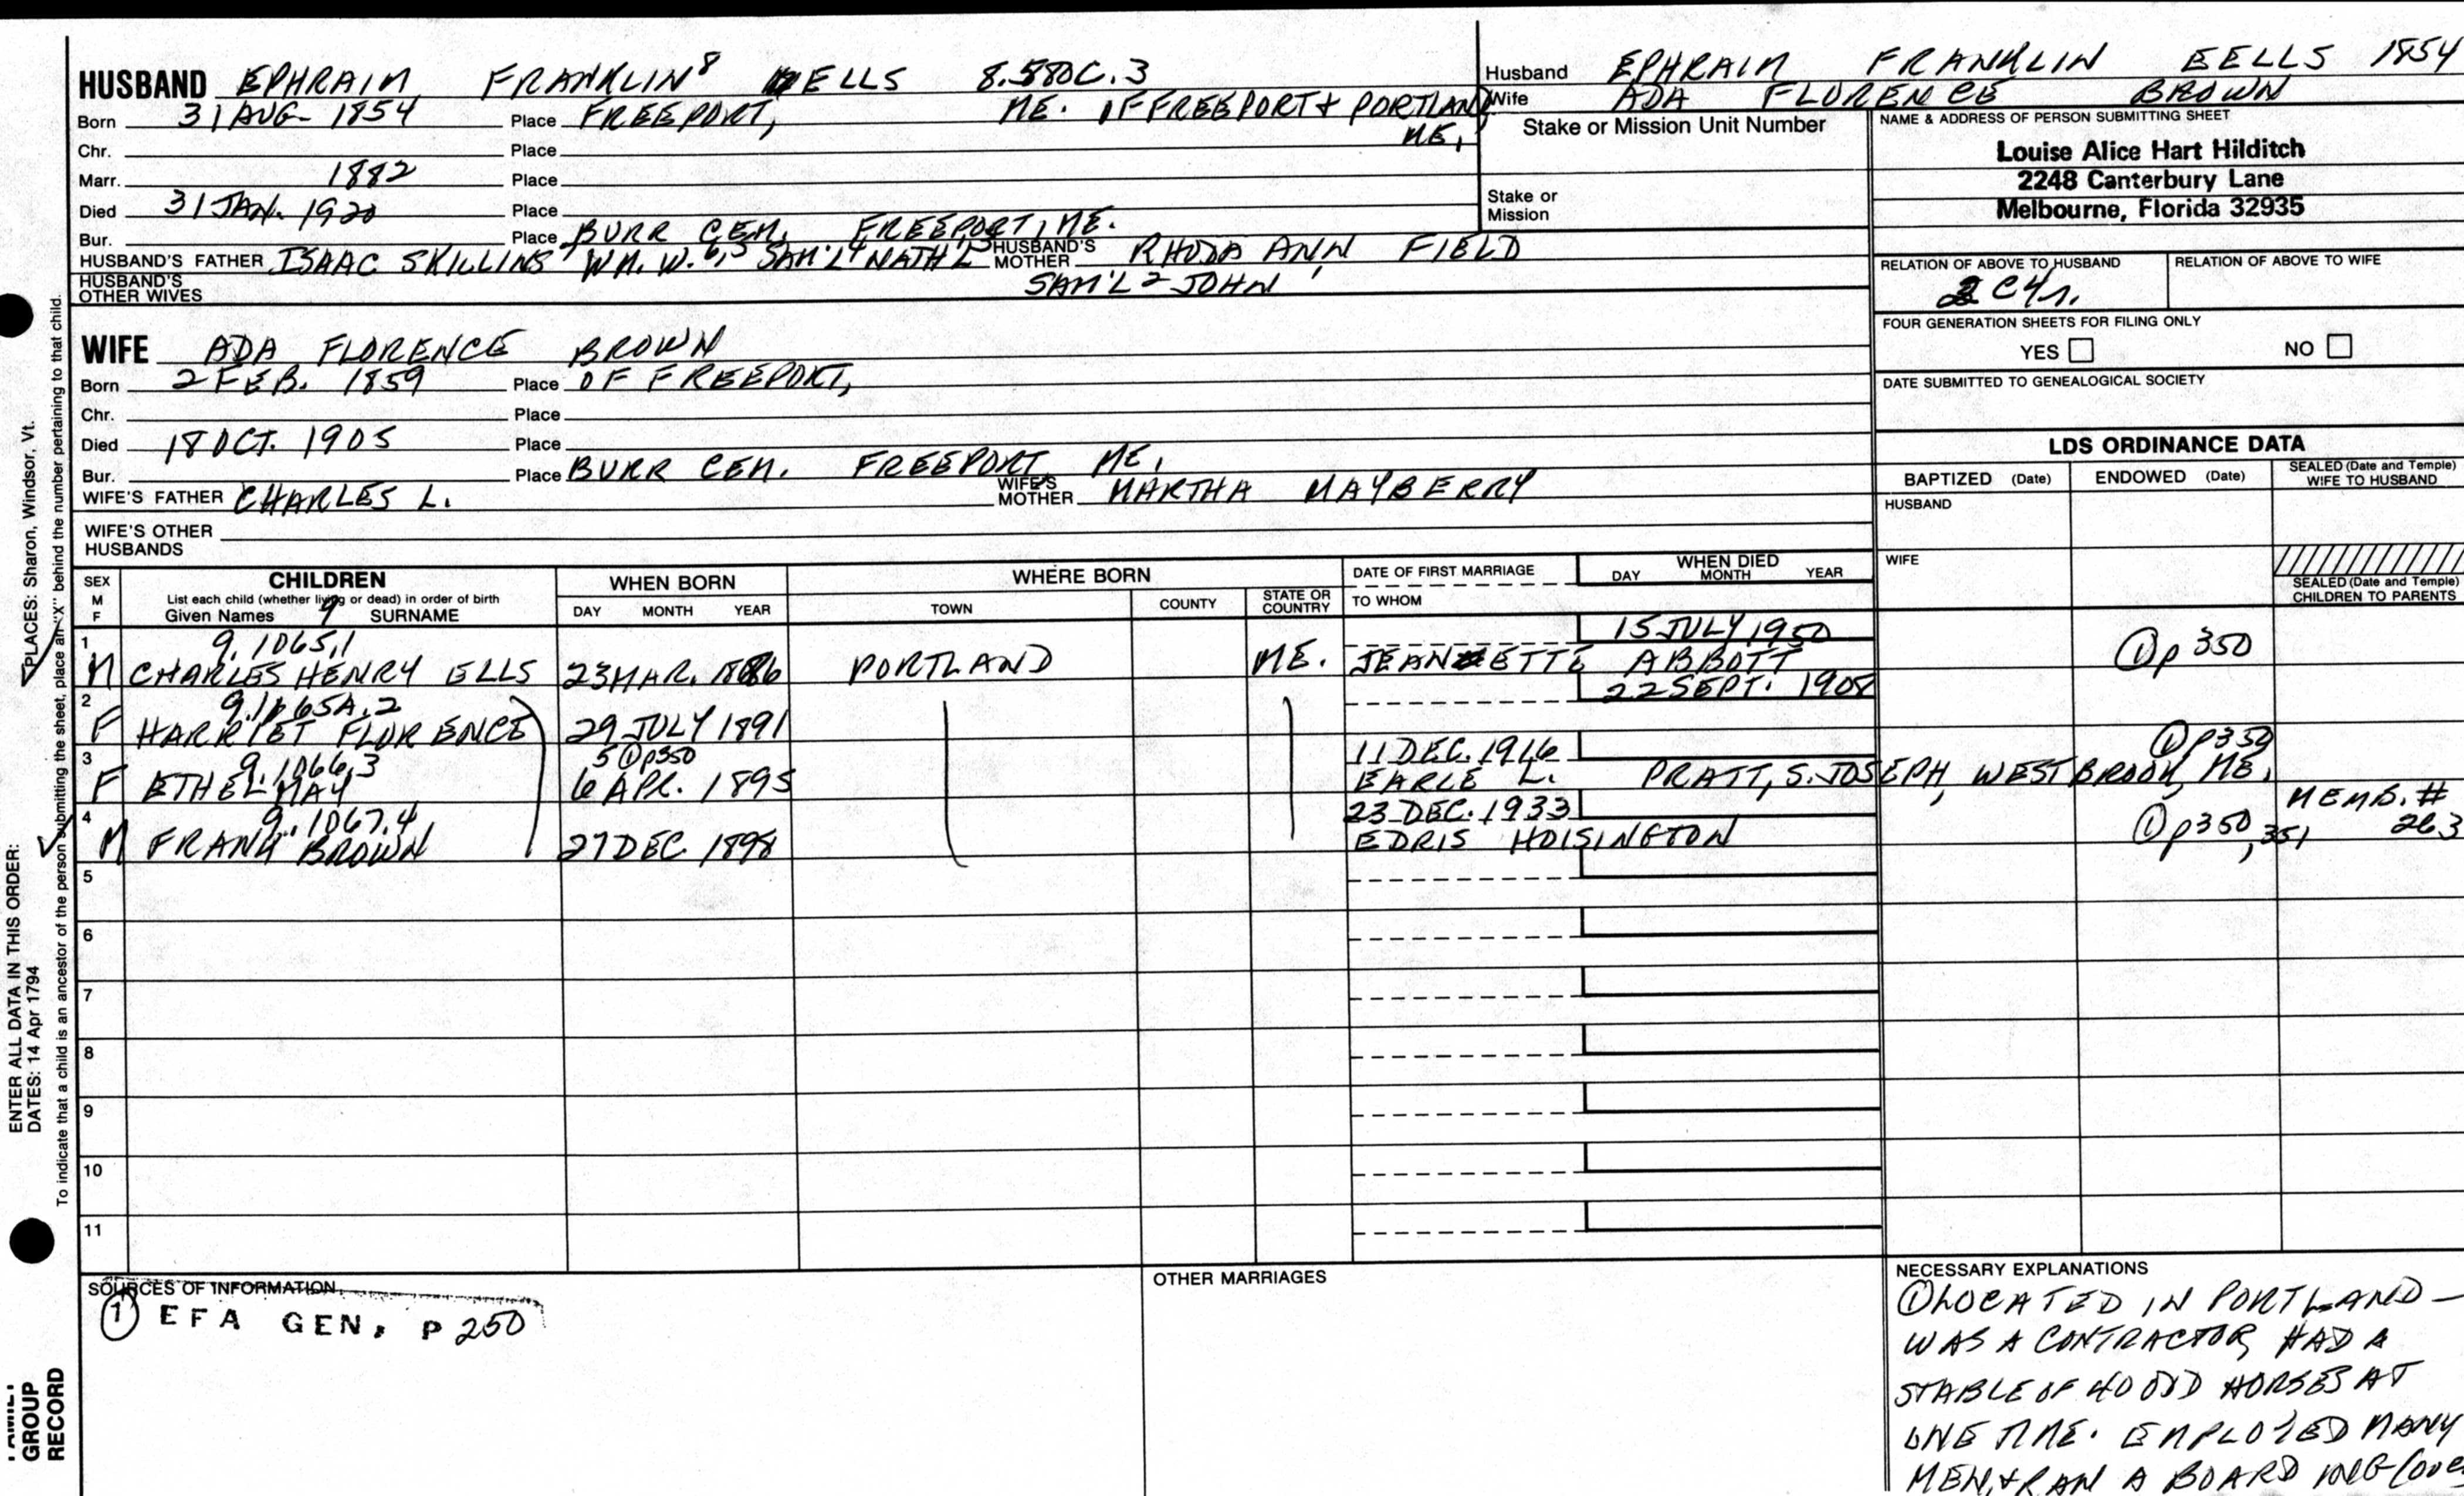 HUSBAND EPHRAIM FRANKLIN⁸ EELLS 8.580C.3
Born 31 AUG- 1854 Place FREEPORT, ME. OF FREEPORT & PORTLAND
ME,
Chr. Place
Marr. 1882 Place
Died 31 JAN. 1920 Place
Bur. Place BURR CEM. FREEPORT, ME.
HUSBAND'S FATHER ISAAC SKILLINS⁷ WM. W.⁶,⁵ SAM'L⁴ NATH'L³ HUSBAND'S MOTHER RHODA ANN FIELD
SAM'L² JOHN¹
HUSBAND'S OTHER WIVES
WIFE ADA FLORENCE BROWN
Born 2 FEB. 1859 Place OF FREEPORT,
Chr. Place
Died 18 OCT. 1905 Place
Bur. Place BURR CEM. FREEPORT, ME,
WIFE'S FATHER CHARLES L. WIFE'S MOTHER MARTHA MAYBERRY
WIFE'S OTHER HUSBANDS
Husband EPHRAIM FRANKLIN EELLS 1854
Wife ADA FLORENCE BROWN
Stake or Mission Unit Number
Stake or Mission
NAME & ADDRESS OF PERSON SUBMITTING SHEET
Louise Alice Hart Hilditch
2248 Canterbury Lane
Melbourne, Florida 32935
RELATION OF ABOVE TO HUSBAND RELATION OF ABOVE TO WIFE
FOUR GENERATION SHEETS FOR FILING ONLY
YES NO
DATE SUBMITTED TO GENEALOGICAL SOCIETY
LDS ORDINANCE DATA
BAPTIZED (Date) ENDOWED (Date) SEALED (Date and Temple) WIFE TO HUSBAND
HUSBAND
WIFE
SEALED (Date and Temple) CHILDREN TO PARENTS
SEX M F
CHILDREN
List each child (whether living or dead) in order of birth
Given Names 9 SURNAME
WHEN BORN
DAY MONTH YEAR
WHERE BORN
TOWN COUNTY STATE OR COUNTRY
DATE OF FIRST MARRIAGE
TO WHOM
WHEN DIED
DAY MONTH YEAR
1 9.1065.1 15 JULY 1950
M CHARLES HENRY ELLS 23 MAR. 1886 PORTLAND ME. JEANNETTE ABBOTT ① p 350
2 9.1065A.2 22 SEPT. 1908
F HARRIET FLORENCE 29 JULY 1891
3 9.1066.3 5 ① p350 11 DEC. 1916 ① P350
F ETHEL MAY 6 APR. 1895 EARLE L. PRATT, S. JOSEPH, WESTBROOK, ME.
4 9.1067.4 23 DEC. 1933 MEMB. #
M FRANK BROWN 27 DEC. 1898 EDRIS HOISINGTON ① p350, 351 263
5
6
7
8
9
10
11
SOURCES OF INFORMATION
① EFA GEN, P 250
OTHER MARRIAGES
NECESSARY EXPLANATIONS
① LOCATED IN PORTLAND—
WAS A CONTRACTOR, HAD A
STABLE OF 40 ODD HORSES AT
ONE TIME. EMPLOYED MANY
MEN, & RAN A BOARDING (over
PLACES: Sharon, Windsor, Vt.
To indicate that a child is an ancestor of the person submitting the sheet, place an "X" behind the number pertaining to that child.
ENTER ALL DATA IN THIS ORDER:
DATES: 14 Apr 1794
FAMILY
GROUP
RECORD